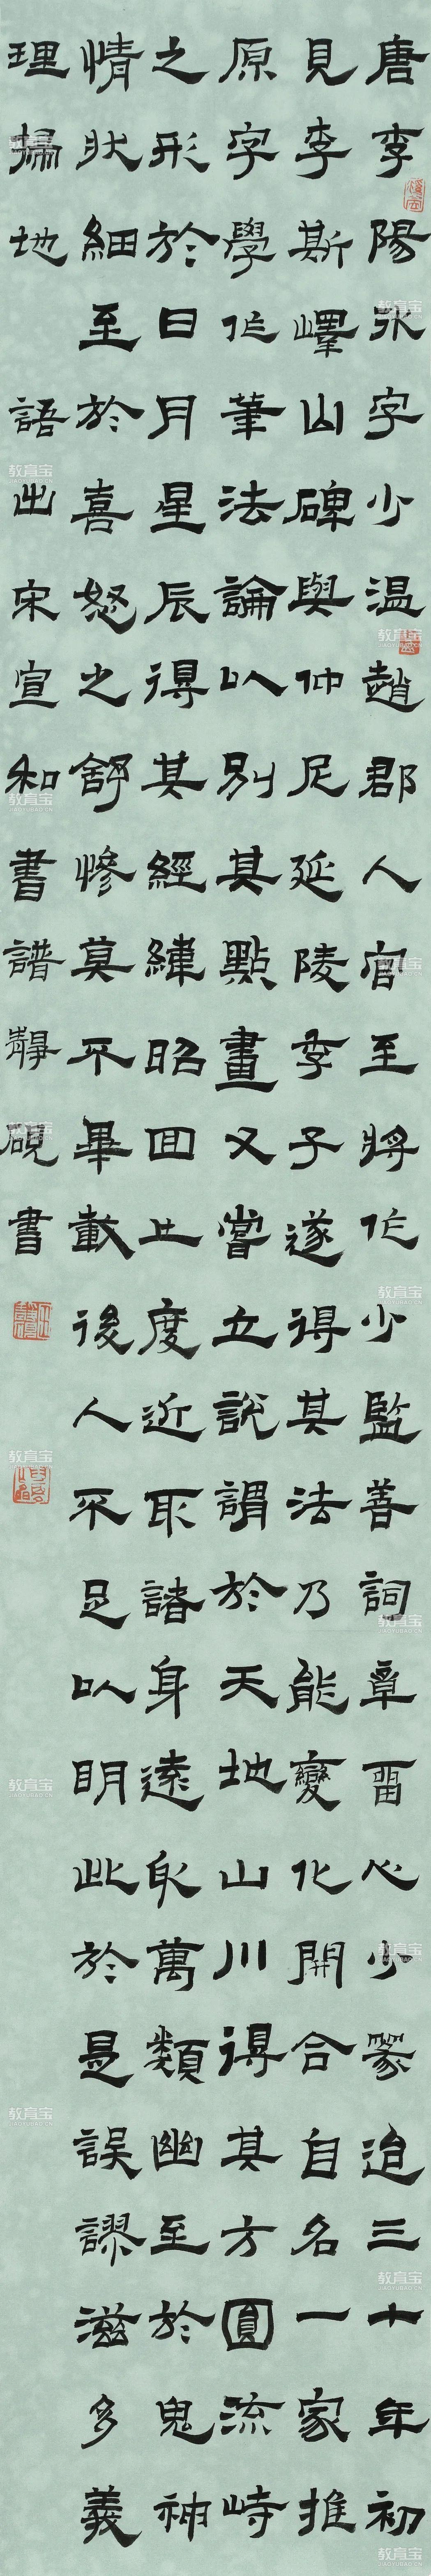 唐李陽冰字少温趙郡人官至將作少監善詞章留心少篆迨三十年初
見李斯嶧山碑與仲尼延陵季子遂得其法乃能變化開合自名一家推
原字學作筆法論以別其點畫又嘗立說謂於天地山川得其方圓流峙
之形於日月星辰得其經緯昭回之度近取諸身遠取萬類幽至於鬼神
情狀細至於喜怒之舒慘莫不畢載後人不足以明此於是誤謬滋多義
理掃地 語出宋宣和書譜靜硯書
教育宝
JIAOYUBAO.CN